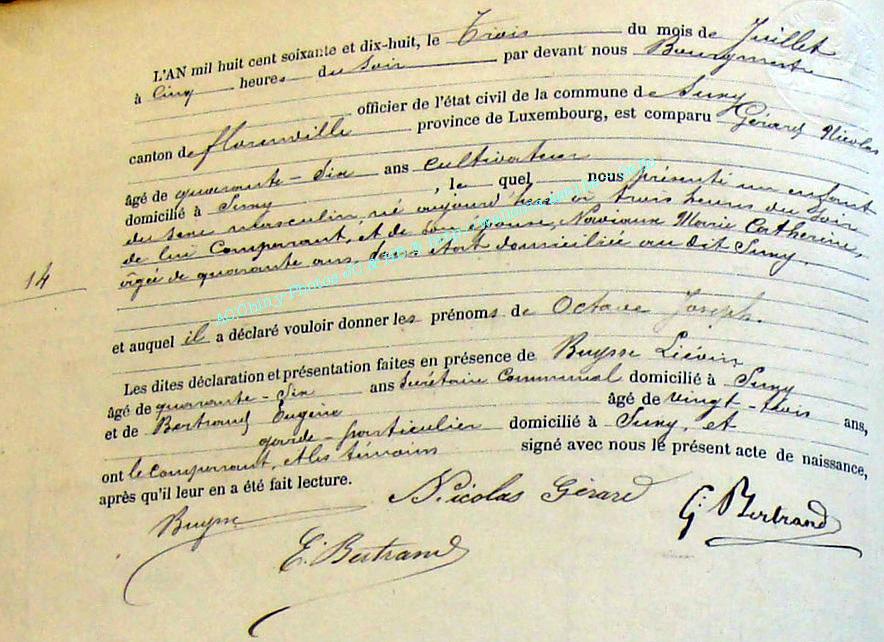 L'AN mil huit cent soixante et dix-huit, le Trois du mois de Juillet
à Cinq heures du Soir par devant nous Bourgmestre
officier de l'état civil de la commune de Suny
canton de florenville province de Luxembourg, est comparu Gérard Nicolas
âgé de quarante-Six ans Cultivateur
domicilié à Suny, le quel nous présenté un enfant
du sexe masculin, né aujourd'hui à trois heures du Soir
de lui Comparant, et de son épouse, Marie Catherine,
âgée de quarante ans, domiciliée au dit Suny.
14
et auquel il a déclaré vouloir donner les prénoms de Octave Joseph.
Les dites déclaration et présentation faites en présence de Buysse Liévin
âgé de quarante-Six ans Secrétaire Communal domicilié à Suny
et de Bertrand Eugène âgé de vingt-trois ans,
garde-particulier domicilié à Suny, et
ont le comparant, et les témoins signé avec nous le présent acte de naissance,
après qu'il leur en a été fait lecture.
Buysse Nicolas Gérard G. Bertrand
E. Bertrand